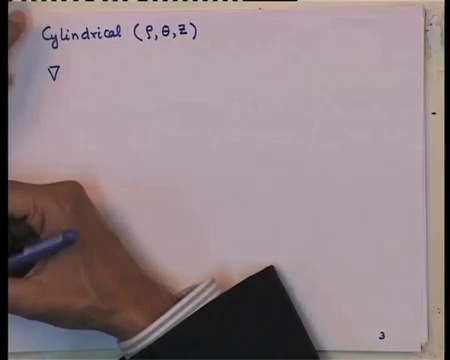 Cylindrical (ρ, θ, z)
∇
3